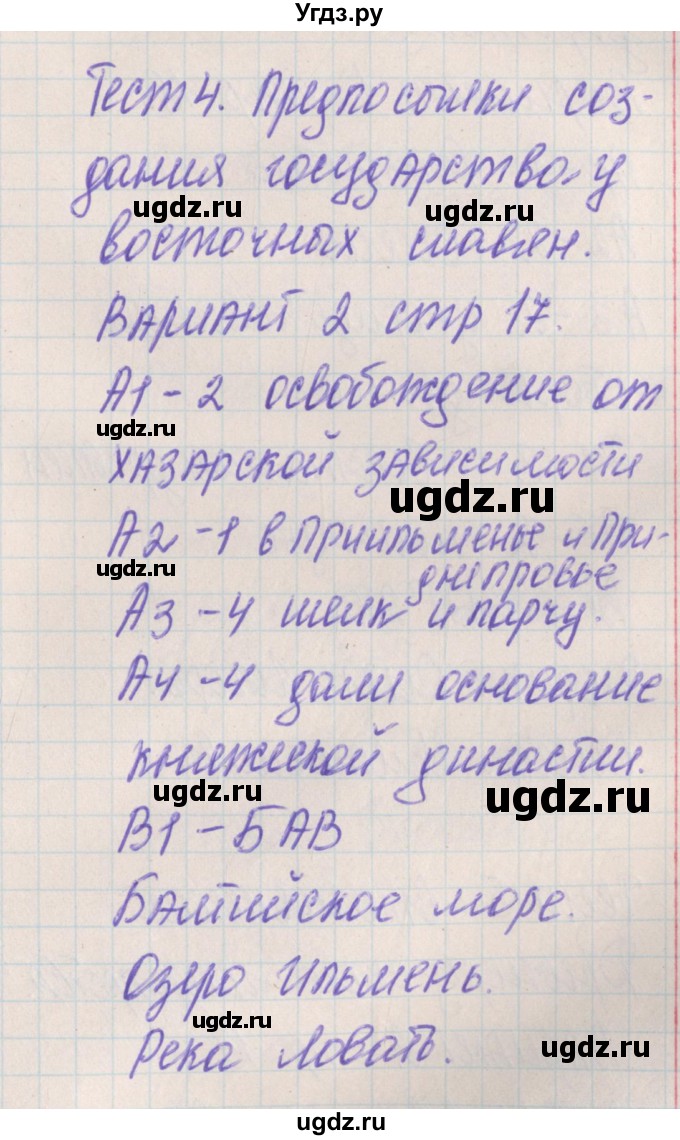 Угдз.ру
Тест 4. Предпосылки соз-
дания государства у
ugdz.ru ugdz.ru
восточных славян.
Вариант 2 стр 17.
А1 - 2 освобождение от
ugdz.ru
хазарской зависимости
ugdz.ru
А2 - 1 в Приильменье и При-
ugdz.ru днепровье
А3 - 4 шелк и парчу.
А4 - 4 дали основание
княжеской династии.
ugdz.ru ugdz.ru
В1 - БАВ
Балтийское море.
Озеро Ильмень.
ugdz.ru
Река Ловать.
ugdz.ru
ugdz.ru